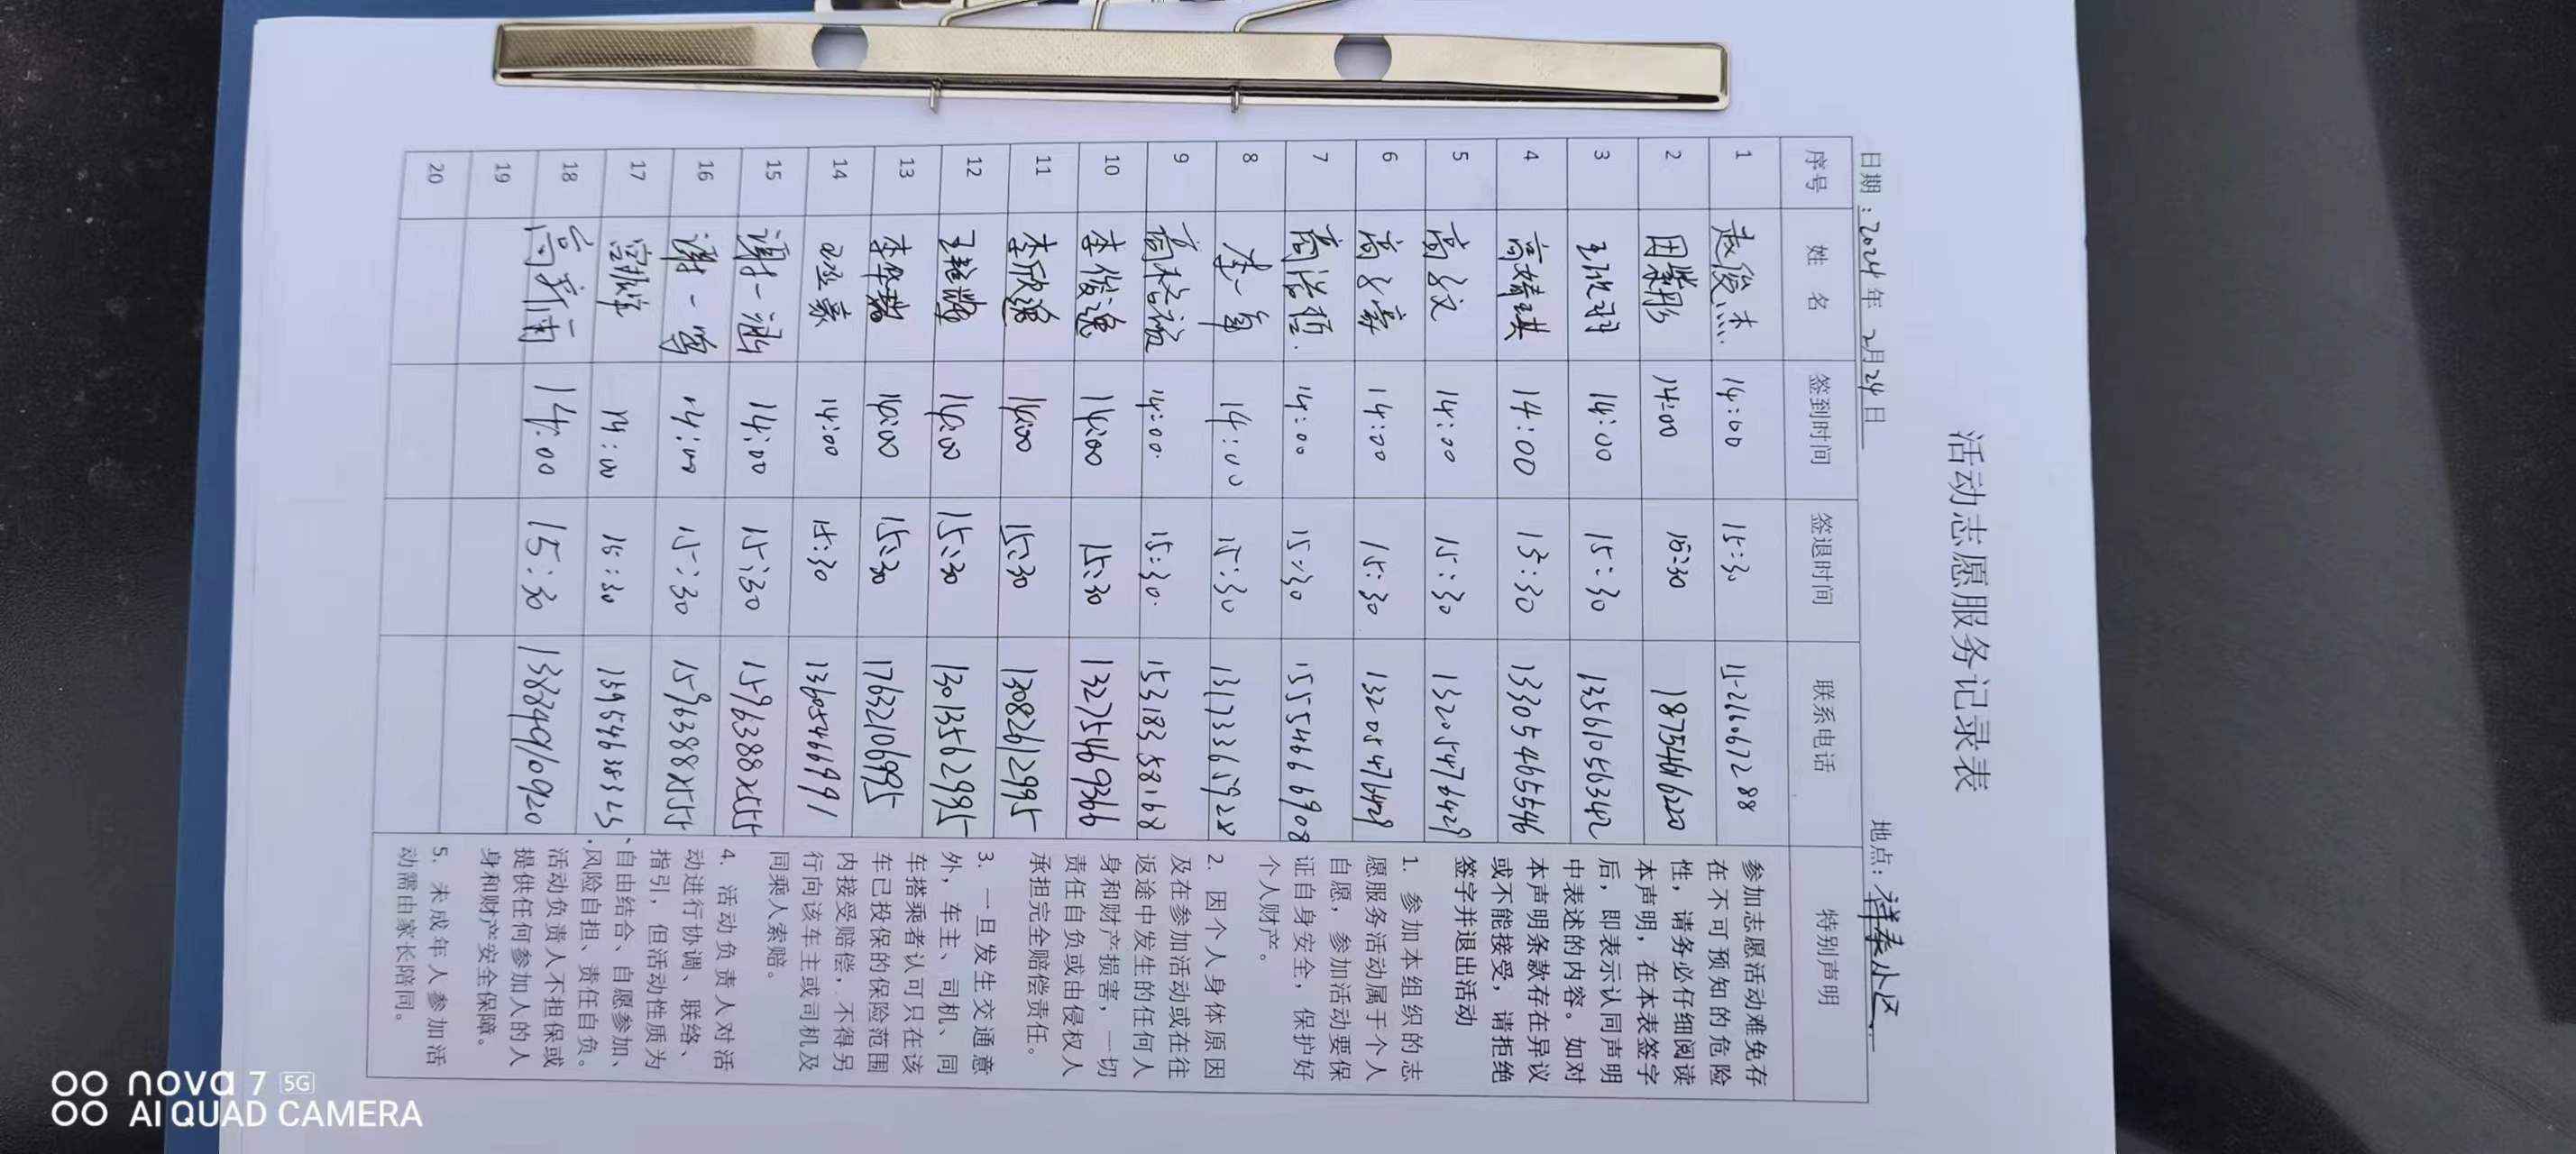 活动志愿服务记录表
日期:2024年 2月24日 地点:祥泰小区
序号 姓 名 签到时间 签退时间 联系电话 特别声明
1 赵俊杰 14:00 15:30
2 田紫彤 14:00 15:30 18754616220
3 14:00 15:30 13561056342
4 高婧琪 14:00 15:30 13305465546
5 高文 14:00 15:30 13205476429
6 高子豪 14:00 15:30 13205476429
7 高浩恒 14:00 15:30 15554666908
8 14:00 15:30 13173365928
9 14:00 15:30 15318358168
10 李俊逸 14:00 15:30 13275469366
11 李欣逸 14:00 15:30 13082612995
12 14:00 15:30 13013562995
13 14:00 15:30 17632106995
14 14:00 15:30 13605466991
15 谢一 14:00 15:30
16 谢一鸣 14:00 15:30
17 14:00 15:30
18 高新雨 14:00 15:30
19
20
参加志愿活动难免存
在不可预知的危险
性,请务必仔细阅读
本声明,在本表签字
后,即表示认同声明
中表述的内容。如对
本声明条款存在异议
或不能接受,请拒绝
签字并退出活动
1. 参加本组织的志
愿服务活动属于个人
自愿,参加活动要保
证自身安全,保护好
个人财产。
2. 因个人身体原因
及在参加活动或在往
返途中发生的任何人
身和财产损害,一切
责任自负或由侵权人
承担完全赔偿责任。
3. 一旦发生交通意
外,车主、司机、同
车搭乘者认可只在该
车已投保的保险范围
内接受赔偿,不得另
行向该车主或司机及
同乘人索赔。
4. 活动负责人对活
动进行协调、联络、
指引,但活动性质为
自由结合、自愿参加、
风险自担、责任自负。
活动负责人不担保或
提供任何参加人的人
身和财产安全保障。
5. 未成年人参加活
动需由家长陪同。
nova 7 5G
AI QUAD CAMERA